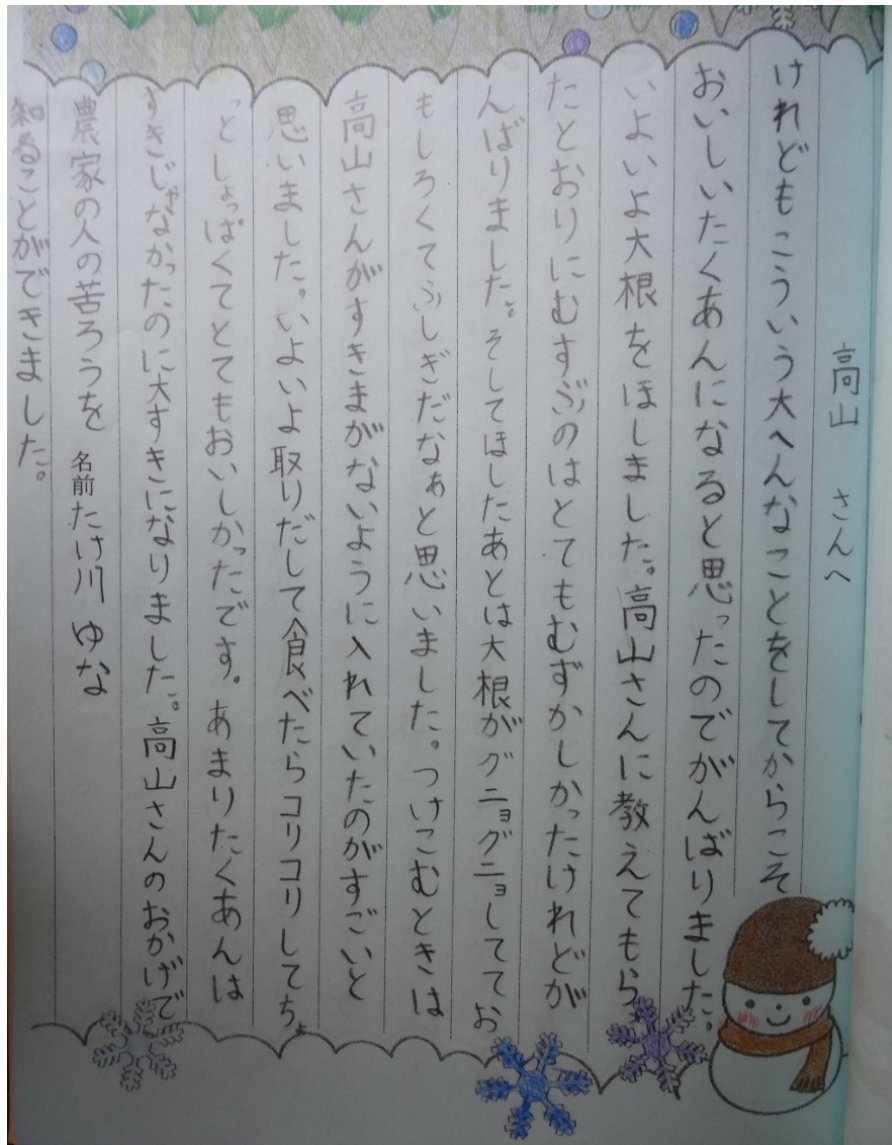 高山 さんへ
けれどもこういう大へんなことをしてからこそ
おいしいたくあんになると思ったのでがんばりました。
いよいよ大根をほしました。高山さんに教えてもらっ
たとおりにむすぶのはとてもむずかしかったけれどが
んばりました。そしてほしたあとは大根がグニョグニョしててお
もしろくてふしぎだなぁと思いました。つけこむときは
高山さんがすきまがないように入れていたのがすごいと
思いました。いよいよ取りだして食べたらコリコリしてちょ
っとしょっぱくてとてもおいしかったです。あまりたくあんは
すきじゃなかったのに大すきになりました。高山さんのおかげで
農家の人の苦ろうを
知ることができました。
名前 たけ川 ゆな